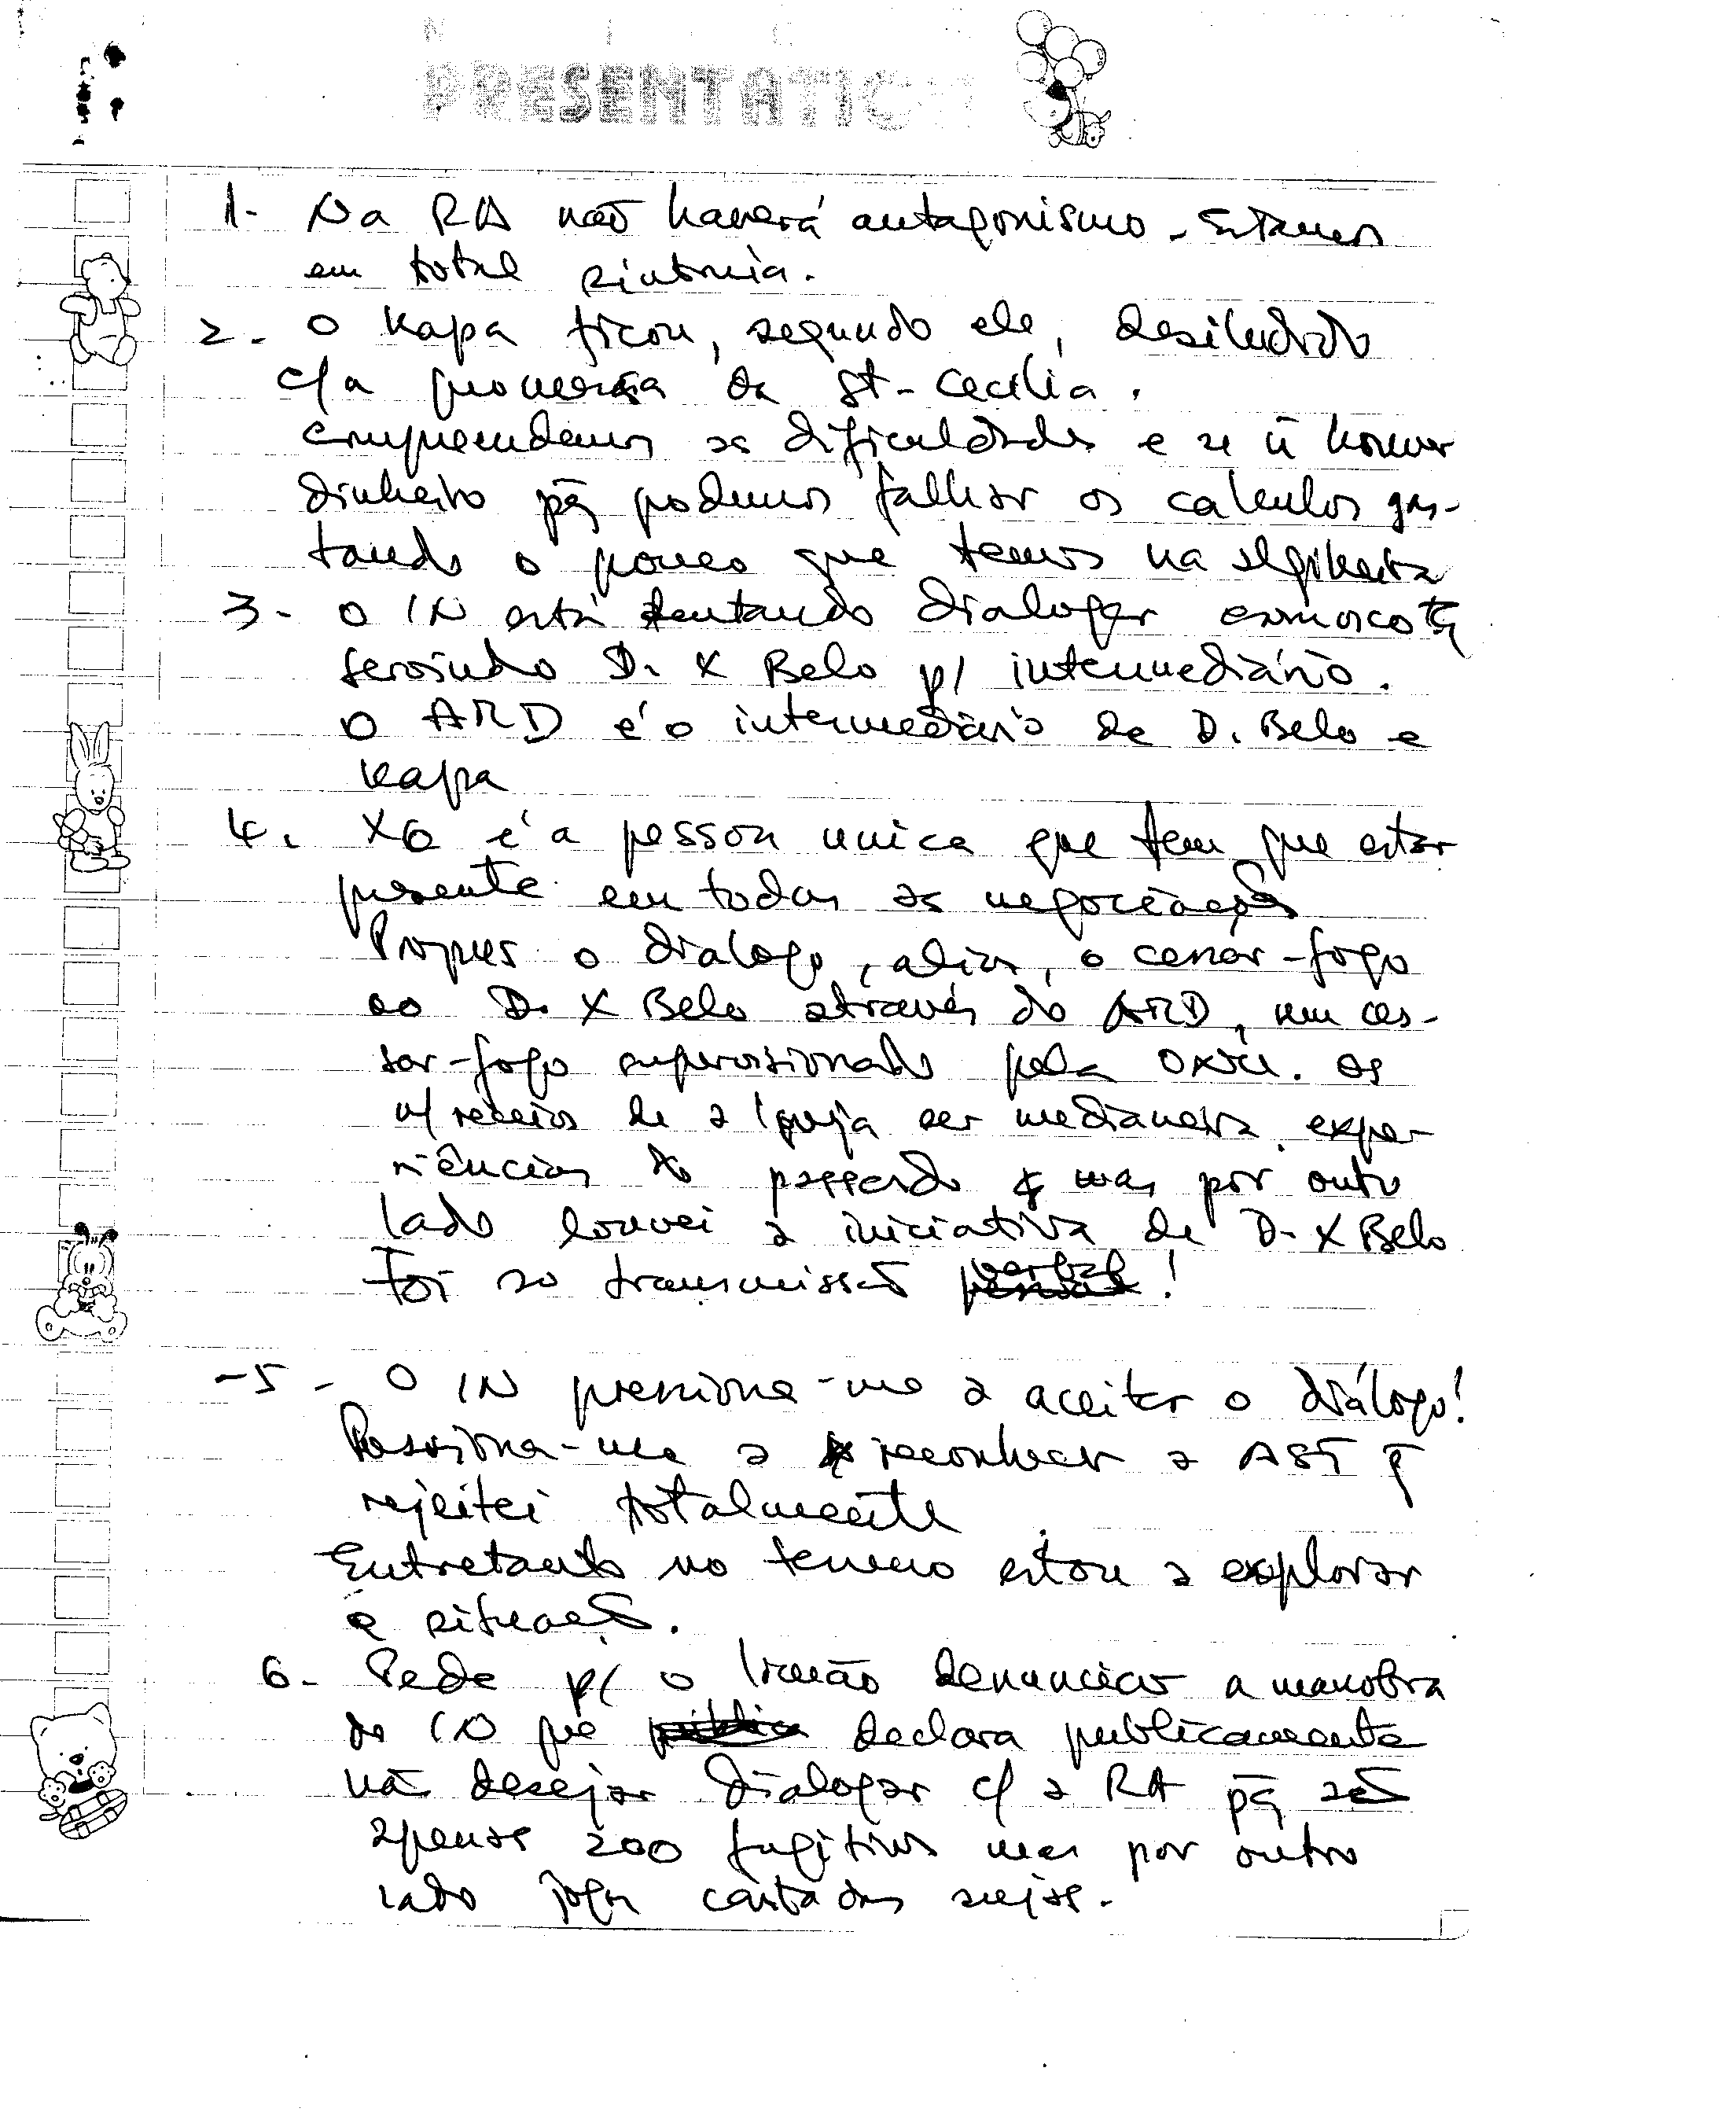 N I C
PRESENTATIO
1- Na RA não haverá antagonismo - Estamos
em total sintonia.
2- O Kapa ficou, segundo ele, desiludido
c/a promessa da St-Cecília.
Compreendemos as dificuldades e se ñ houver
dinheiro pq podemos falhar os calculos gas-
tando o pouco que temos na algibeira
3- O IN está tentando dialogar
servindo D. X Belo p/ intermediário.
O ARD é o intermediário de D. Belo e
Kapa
4. XG é a pessoa unica que tem que estar
presente em todas as negociações
Propus o dialogo, alias, o cessar-fogo
ao D. X Belo através do ARD, um ces-
sar-fogo supervisionado pela ONU. Os
n/ receios de a Igreja ser medianeira expe-
riências do passado mas por outro
lado louvei a iniciativa de D. X Belo
Foi so transmissão verbal!
-5- O IN pressiona-me a aceitar o diálogo!
Pressiona-me a reconhecer a AST q
rejeitei totalmente
Entretanto no terreno estou a explorar
a situação.
6- Pede p/ o Irmão denunciar a manobra
do IN que declara publicamente
não desejar dialogar c/ a RA pq são
apenas 200 fugitivos mas por outro
lado joga cartadas sujas.